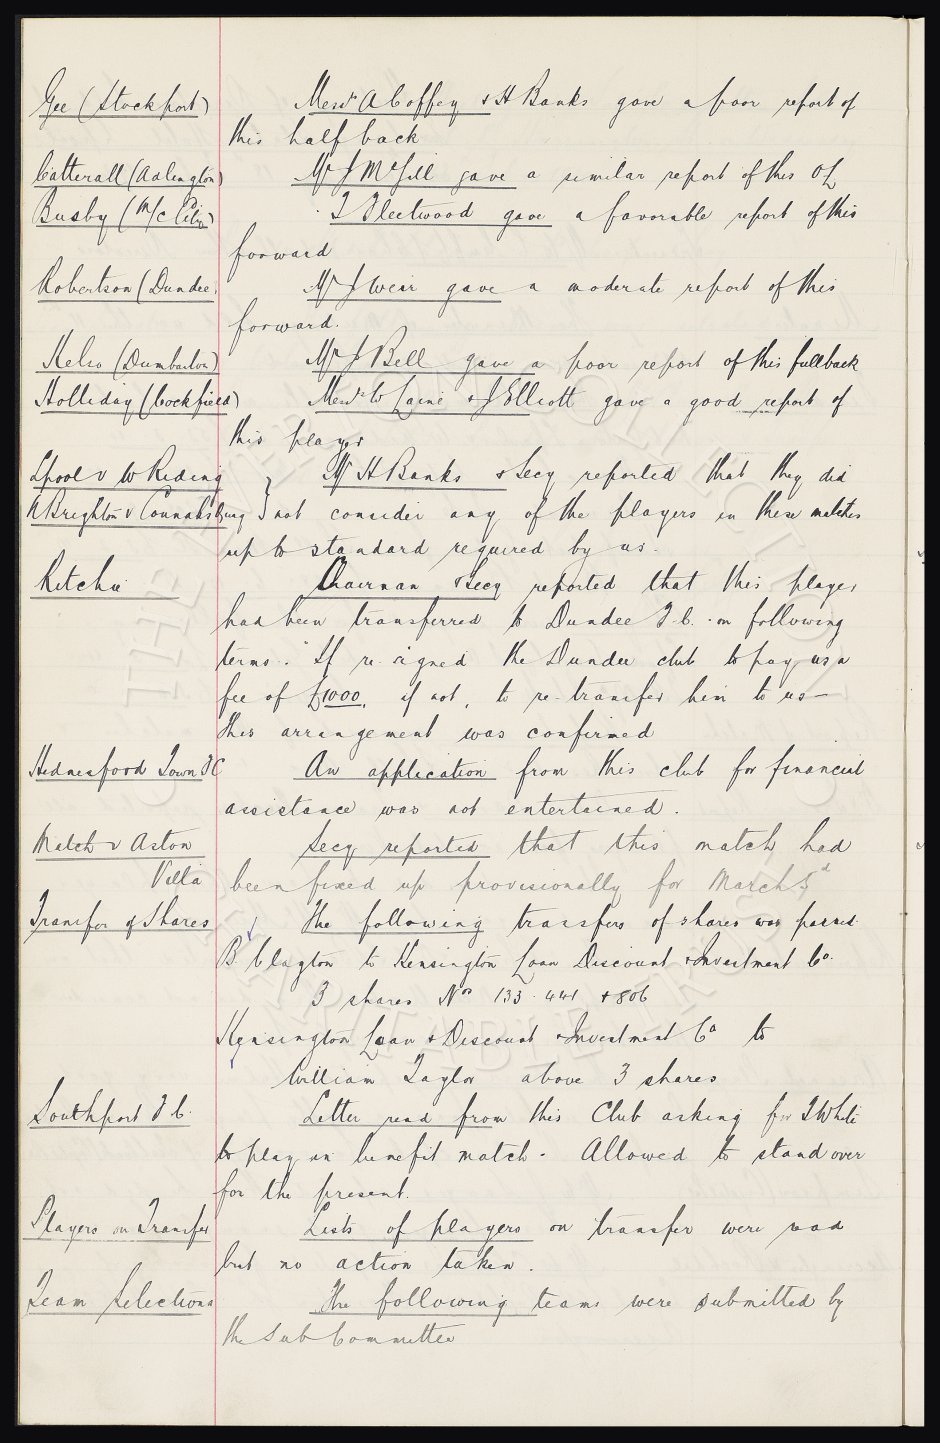 Gee (Stockport) Messrs A Coffey & H Banks gave a poor report of
this half back
Catterall (Adlington) Mr J McGill gave a similar report of this OL
Busby (M/c City) T Fleetwood gave a favorable report of this
forward
Robertson (Dundee) Mr J Weir gave a moderate report of this
forward.
Kelso (Dumbarton) Mr J Bell gave a poor report of this fullback
Holliday (Cockfield) Messrs W Laine & J Elliott gave a good report of
this player
Lpool v W Riding } Mr H Banks & Secy reported that they did
N Brighton v Connahs Quay } not consider any of the players in these matches
up to standard required by us.
Ritchie Chairman & Secy reported that this player
had been transferred to Dundee F.C. on following
terms. "If re signed the Dundee club to pay us a
fee of £1000, if not, to re-transfer him to us—
this arrangement was confirmed
Hednesfoord Town FC An application from this club for financial
assistance was not entertained.
Match v Aston Secy reported that this match had
Villa been fixed up provisionally for March 5d
Transfer of Shares The following transfers of shares was passed
B Clayton to Kensington Loan Discount & Investment Co.
3 shares Nos 133. 441 & 806
Kensington Loan & Discount & Investment Co to
William Taylor above 3 shares
Southport F.C. Letter read from this Club asking for T White
to play in benefit match. Allowed to stand over
for the present.
Players on Transfer Lists of players on transfer were read
but no action taken.
Team Selections The following teams were submitted by
the Sub Committee